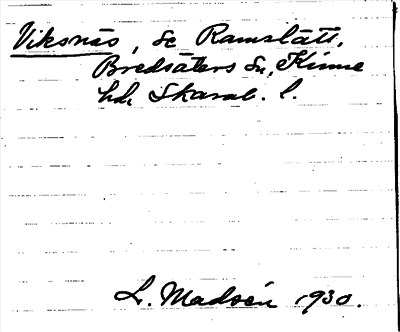 Viksnäs, se Ramslätt,
Bredsäters sn, Kinne
hd, Skarab. l.
L. Madsén 1930.